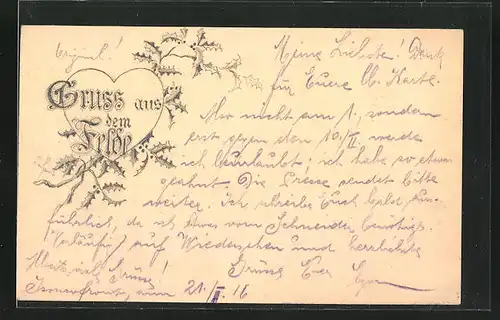 Original!
Gruss aus
dem
Felde
Meine Liebste! Dank
für Euere lb. Karte.
Also nicht am 1., sondern
erst gegen den 10./II werde
ich beurlaubt; ich habe so etwas
geahnt. Die Presse sendet bitte
weiter. Ich schreibe Euch bald aus-
führlich, da ich etwas vom Schneider benötige.
(Vorläufig) auf Wiedersehen und herzlichste
Grüsse Euer
21./II. 16